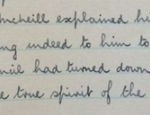 explained h
ng indeed to him to
had turned down
e true spirit of the